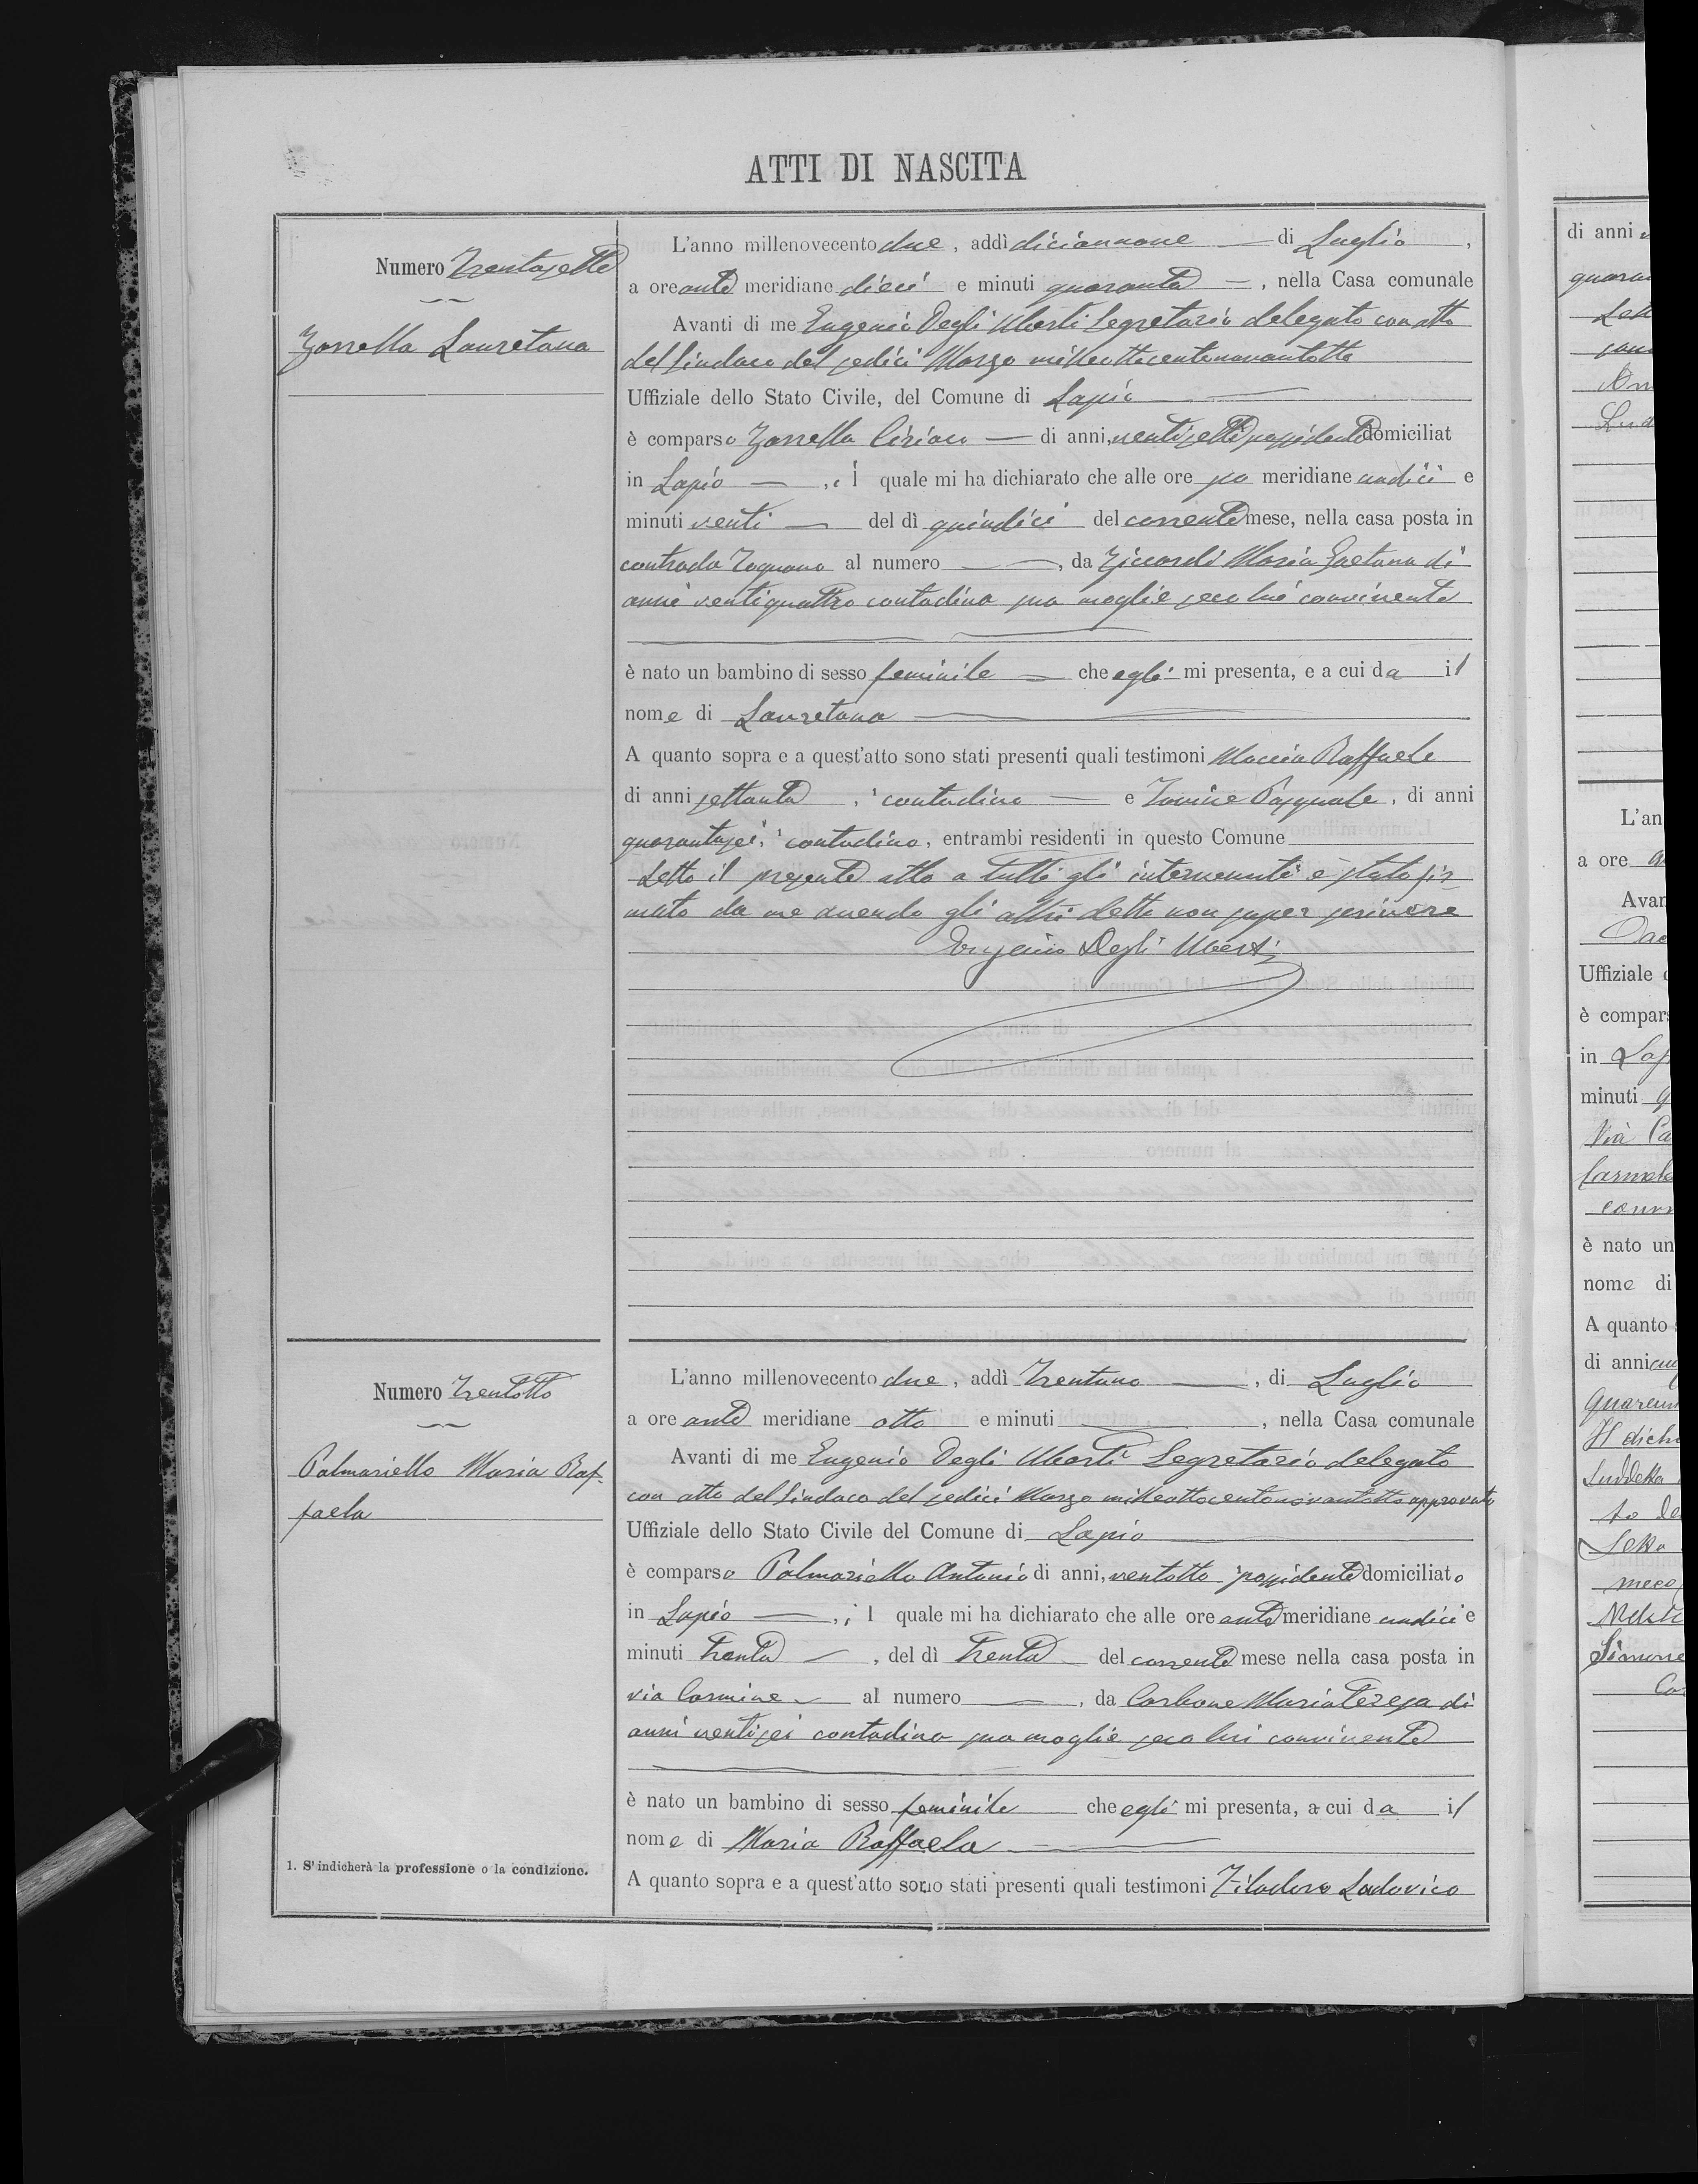 ATTI DI NASCITA
Numero Trentasette
Zarrella Lauretana
L'anno millenovecento due, addì diciannove di Luglio,
a ore ante meridiane dieci e minuti quaranta, nella Casa comunale
Avanti di me Eugenio Degli Uberti Segretario delegato con atto
del Sindaco del sedici Marzo milleottocentonovantotto
Uffiziale dello Stato Civile, del Comune di Lapio
è comparso Zarrella Ciriaco di anni, ventisette possidente domiciliat
in Lapio, il quale mi ha dichiarato che alle ore po meridiane undici e
minuti venti del dì quindici del corrente mese, nella casa posta in
contrada al numero, da Ziccardi Maria Gaetana di
anni ventiquattro contadina sua moglie seco lui convivente
è nato un bambino di sesso feminile che egli mi presenta, e a cui da il
nome di Lauretana
A quanto sopra e a quest'atto sono stati presenti quali testimoni Maccia Raffaele
di anni settanta, contadino e Iannine Pasquale, di anni
quarantasei, contadino, entrambi residenti in questo Comune
Letto il presente atto a tutti gli intervenuti è stato fir-
mato da me avendo gli altri detto non saper scrivere
Eugenio Degli Uberti
Numero Trentotto
Palmariello Maria Raf-
faela
L'anno millenovecento due, addì Trentuno, di Luglio
a ore ante meridiane otto e minuti, nella Casa comunale
Avanti di me Eugenio Degli Uberti Segretario delegato
con atto del Sindaco del sedici Marzo milleottocentonovantotto approvato
Uffiziale dello Stato Civile del Comune di Lapio
è comparso Palmariello Antonio di anni, ventotto possidente domiciliato
in Lapio, il quale mi ha dichiarato che alle ore ante meridiane undici e
minuti trenta, del dì trenta del corrente mese nella casa posta in
via Carmine al numero, da Carbone Maria Teresa di
anni ventisei contadina sua moglie seco lui convivente
è nato un bambino di sesso feminile che egli mi presenta, a cui da il
nome di Maria Raffaela
A quanto sopra e a quest'atto sono stati presenti quali testimoni Filadoro Lodovico
1. S'indicherà la professione o la condizione.
di anni
L'an
a ore
Avan
Uffiziale
è compars
in Lap
minuti
Via Ca
Carmela
è nato un
nome di
A quanto
di anni